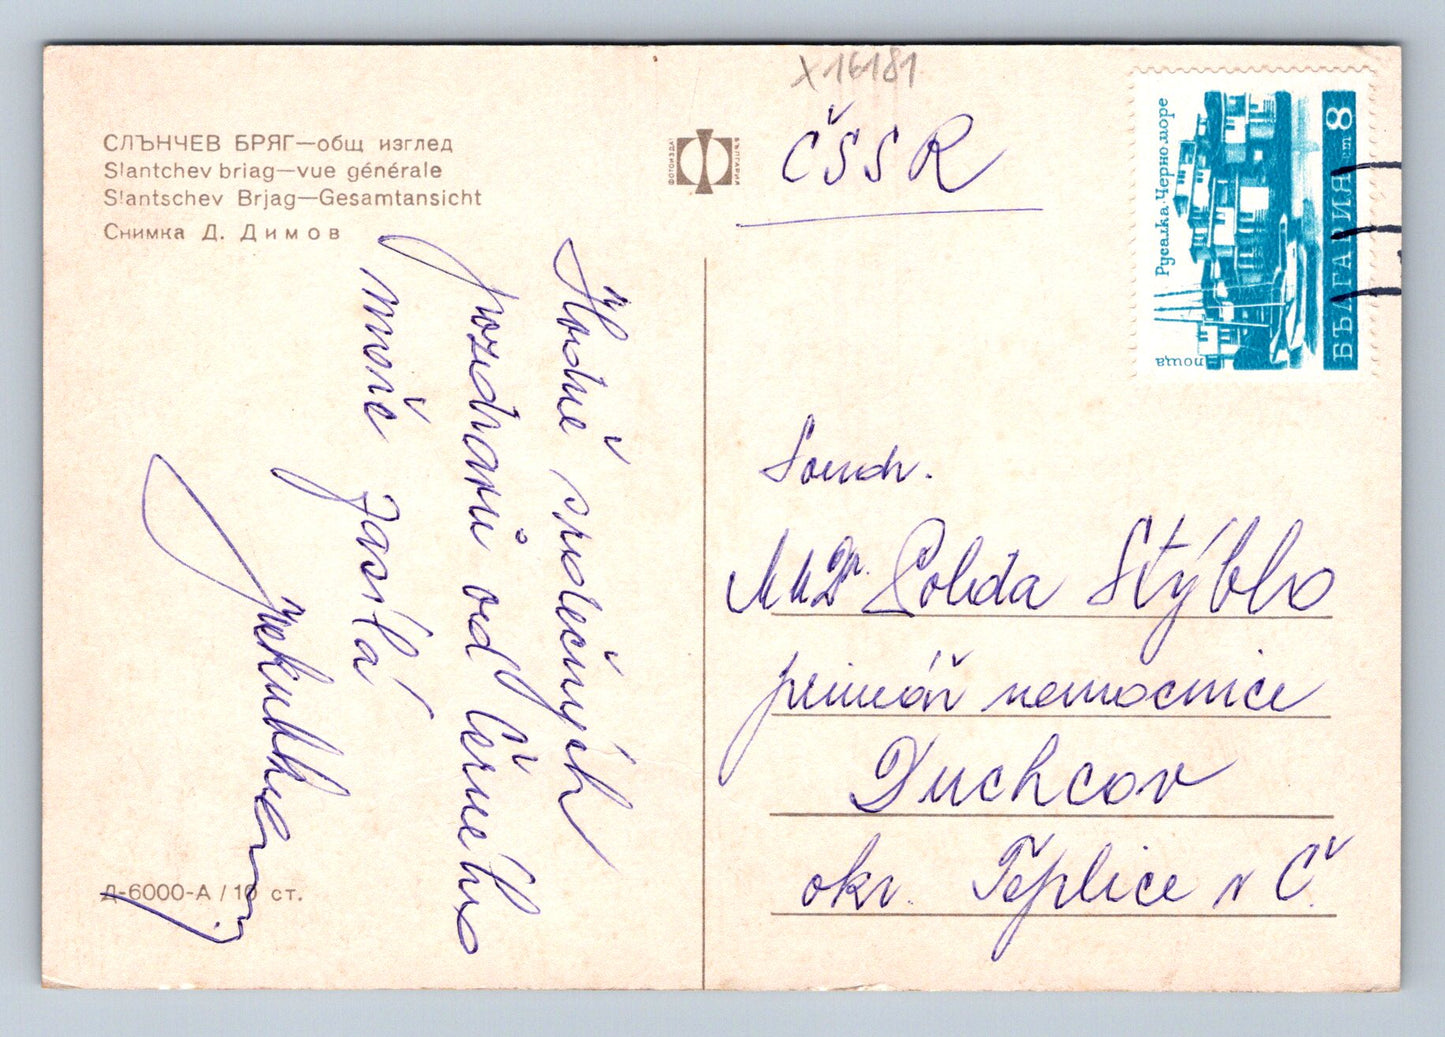 X16181
СЛЪНЧЕВ БРЯГ—общ изглед
Slantchev briag—vue générale
Slantschev Brjag—Gesamtansicht
Снимка Д. Димов
ФОТОИЗДАТ
БЪЛГАРИЯ
ČSSR
Русалка·Черноморе
поща
БЪЛГАРИЯ
8 ст
Hodně srdečných
pozdravů od Černého
moře zasílá
Soudr.
MUDr. Polda Stýblo
primář nemocnice
Duchcov
okr. Teplice v Č.
Д-6000-А / 10 ст.